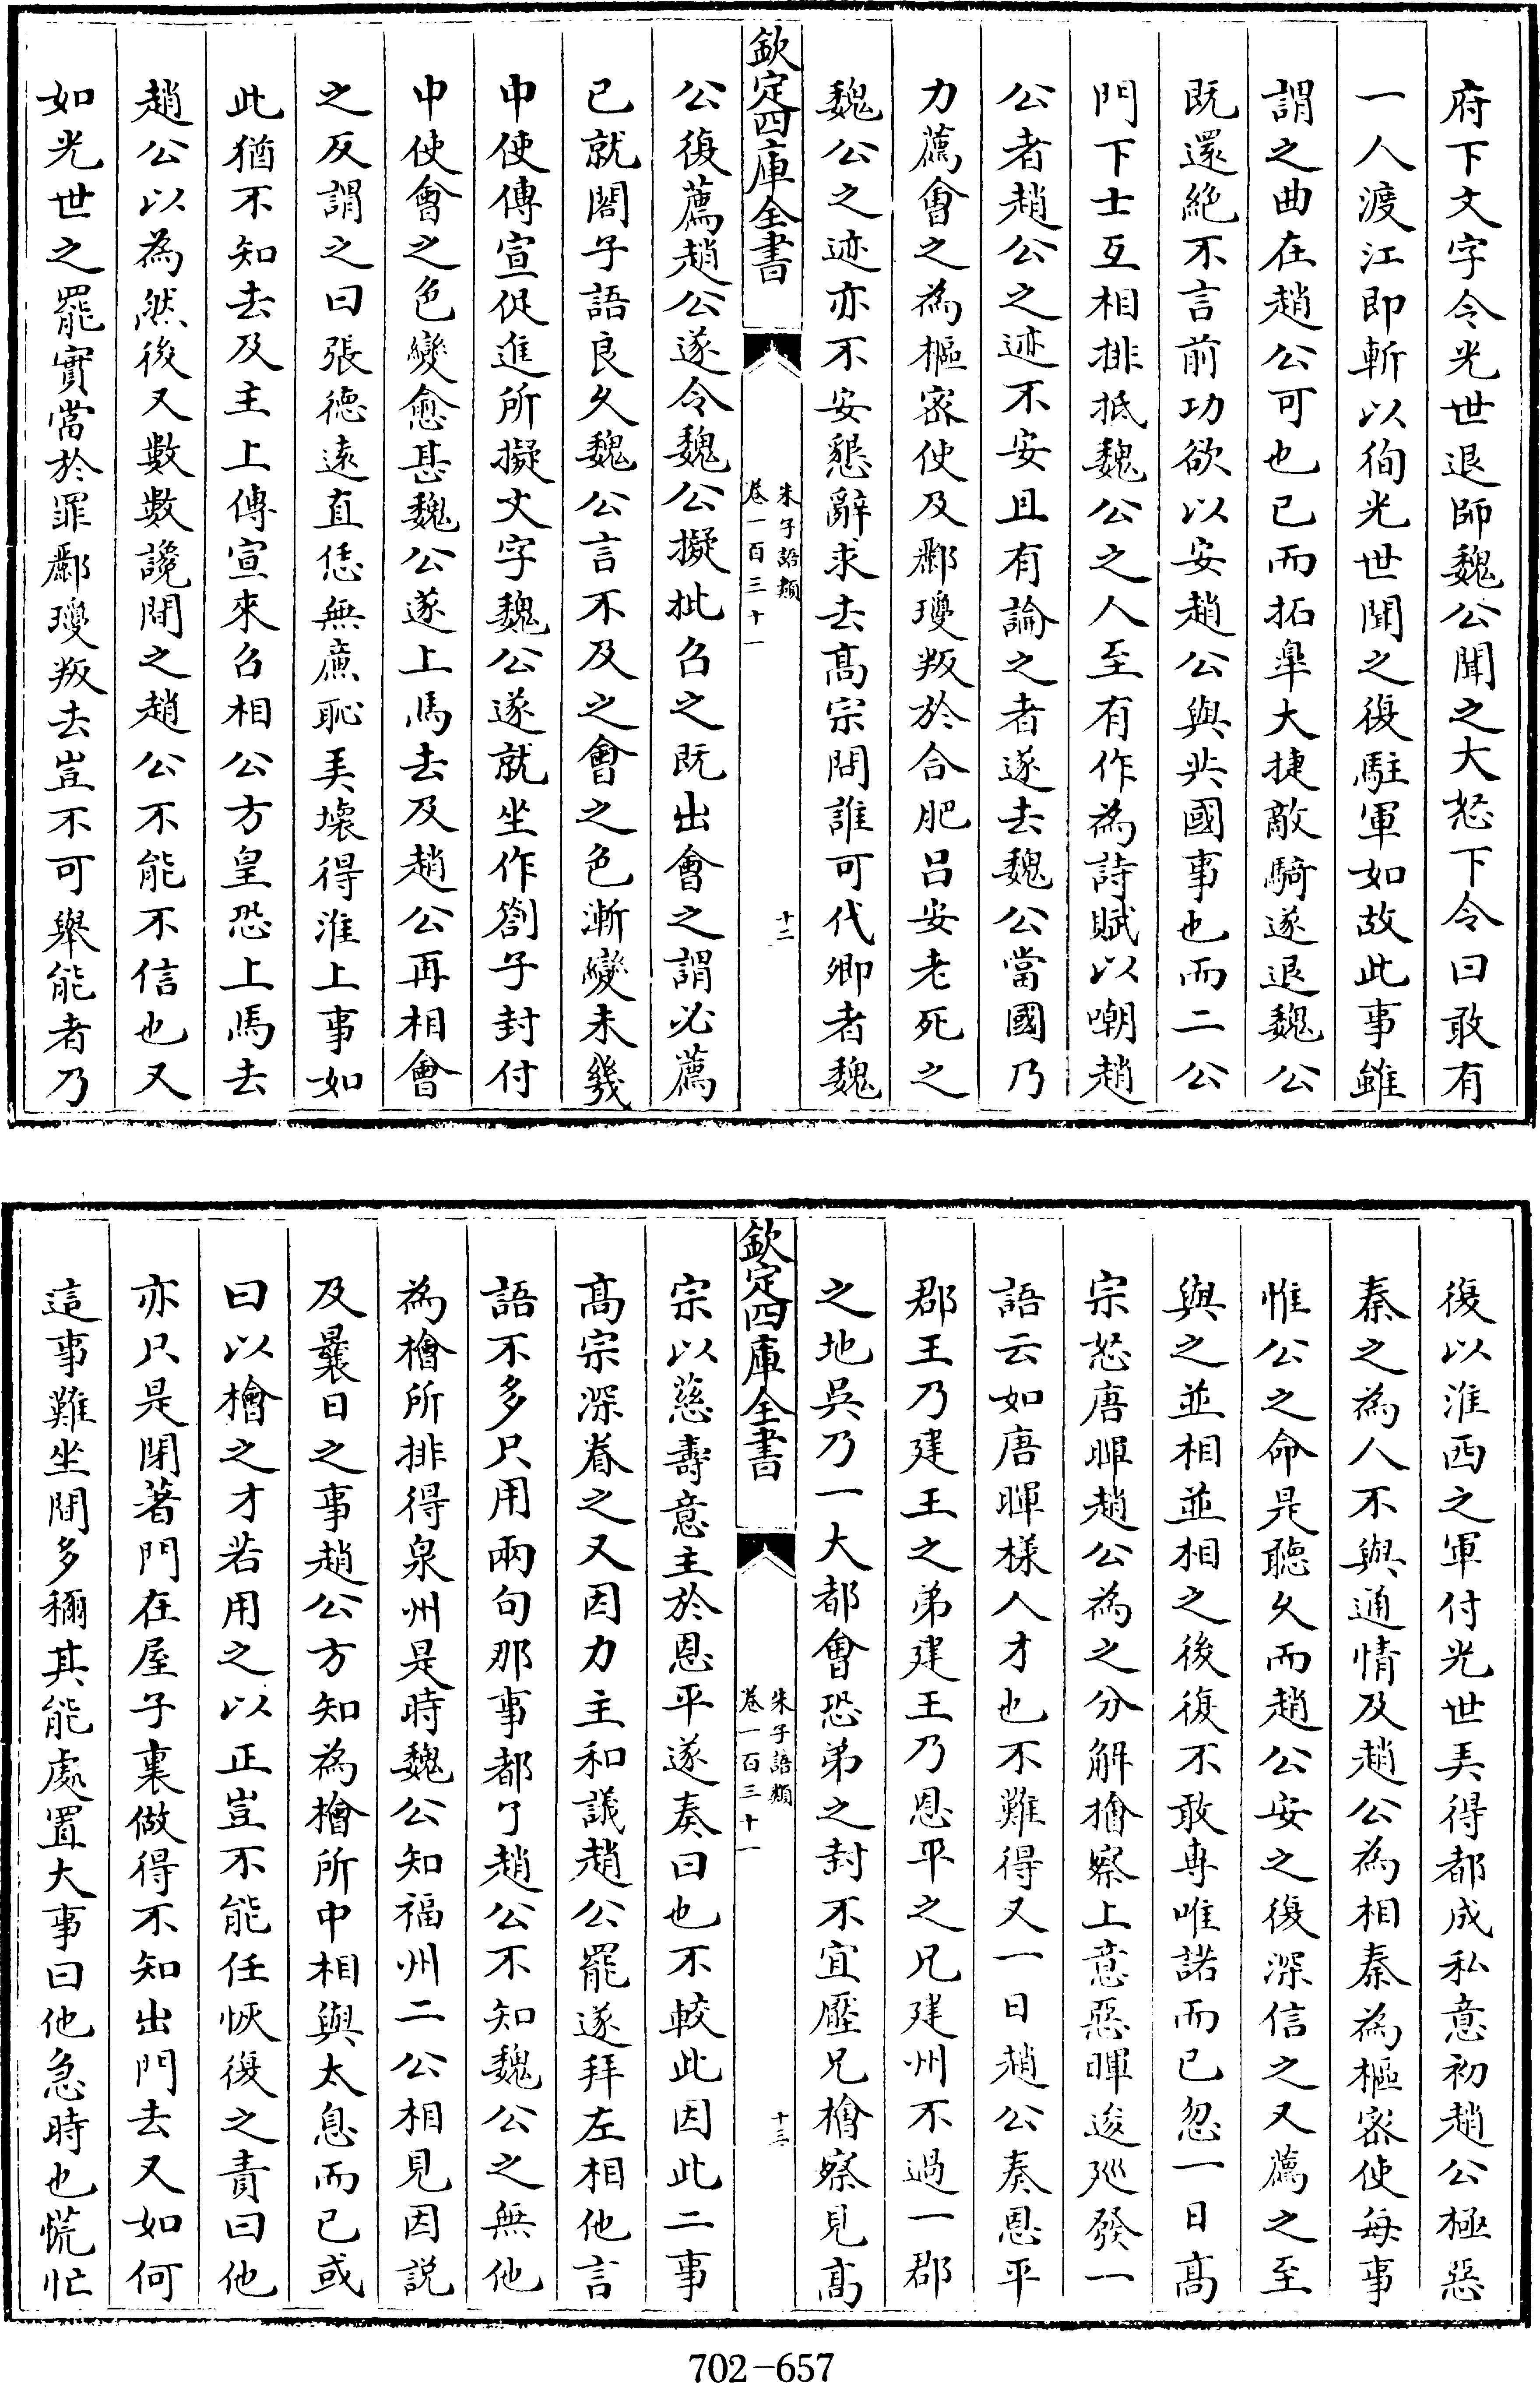 府下文字令光世退師魏公聞之大怒下令曰敢有
一人渡江即斬以徇光世聞之復駐軍如故此事雖
謂之曲在趙公可也已而拓臯大捷敵騎遂退魏公
既還絶不言前功欲以安趙公與共國事也而二公
門下士互相排抵魏公之人至有作為詩賦以嘲趙
公者趙公之迹不安且有論之者遂去魏公當國乃
力薦會之為樞密使及酈瓊叛於合肥呂安老死之
魏公之迹亦不安懇辭求去髙宗問誰可代卿者魏
欽定四庫全書
朱子語類
卷一百三十一
十二
公復薦趙公遂令魏公擬批召之既出會之謂必薦
已就閤子語良久魏公言不及之會之色漸變未幾
中使傳宣促進所擬文字魏公遂就坐作劄子封付
中使會之色變愈甚魏公遂上馬去及趙公再相會
之反謂之曰張德遠直恁無廉恥弄壞得淮上事如
此猶不知去及主上傳宣來召相公方皇恐上馬去
趙公以為然後又數數讒間之趙公不能不信也又
如光世之罷實當於罪酈瓊叛去豈不可舉能者乃
復以淮西之軍付光世弄得都成私意初趙公極惡
秦之為人不與通情及趙公為相秦為樞密使每事
惟公之命是聽久而趙公安之復深信之又薦之至
與之並相並相之後復不敢專唯諾而已忽一日髙
宗怒唐暉趙公為之分解檜察上意惡暉逡巡發一
語云如唐暉様人才也不難得又一日趙公奏恩平
郡王乃建王之弟建王乃恩平之兄建州不過一郡
之地吳乃一大都會恐弟之封不宜壓兄檜察見髙
欽定四庫全書
朱子語類
卷一百三十一
十三
宗以慈壽意主於恩平遂奏曰也不較此因此二事
髙宗深眷之又因力主和議趙公罷遂拜左相他言
語不多只用兩句那事都了趙公不知魏公之無他
為檜所排得泉州是時魏公知福州二公相見因説
及曩日之事趙公方知為檜所中相與太息而已或
曰以檜之才若用之以正豈不能任恢復之責曰他
亦只是閉著門在屋子裏做得不知出門去又如何
這事難坐間多稱其能處置大事曰他急時也慌忙
702-657